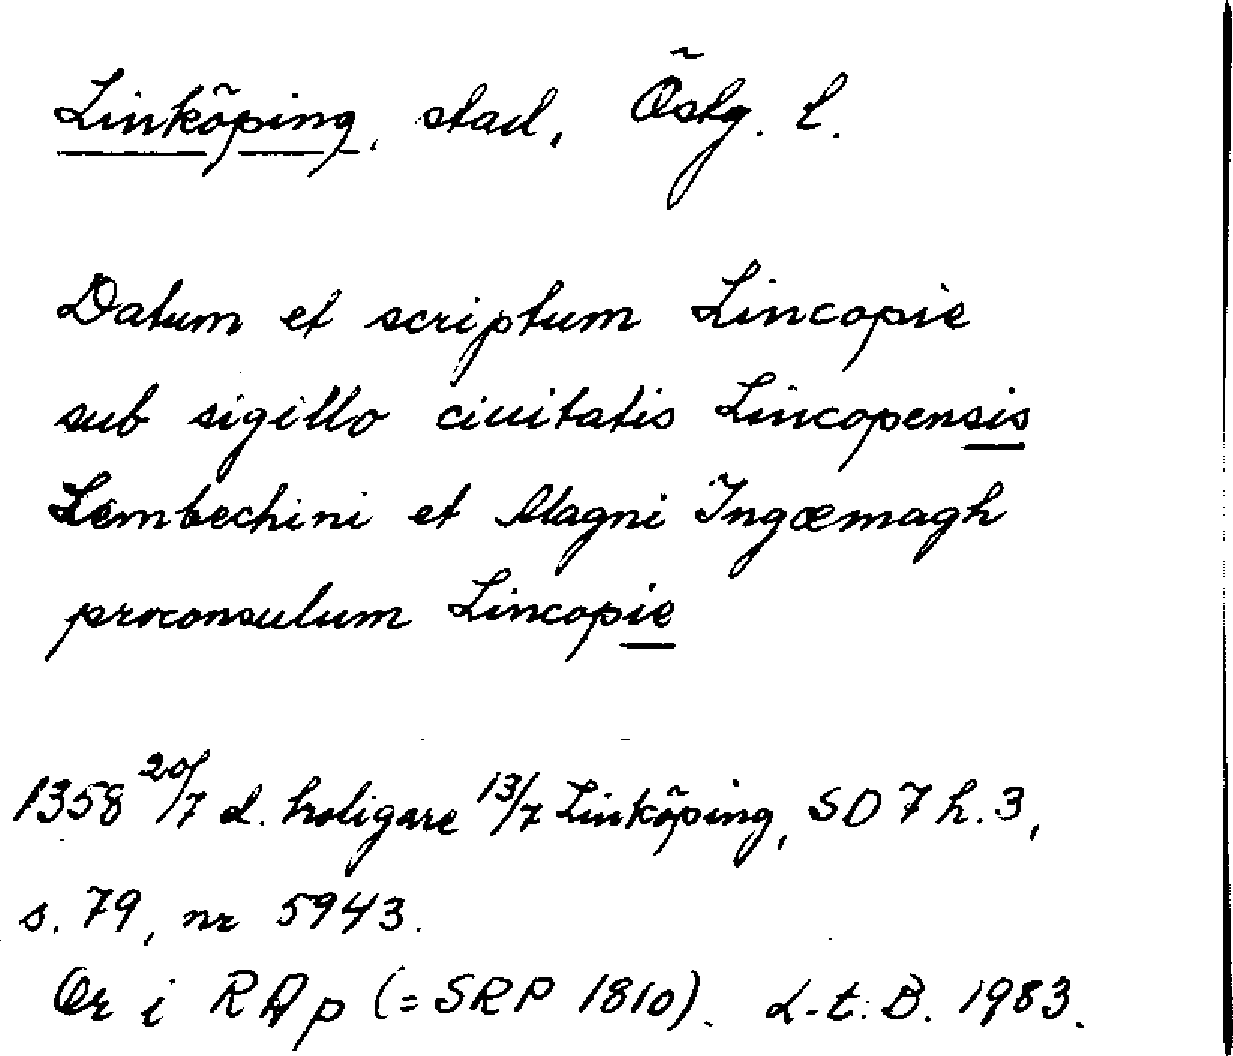 Linköping, stad, Östg. l.
Datum et scriptum Lincopie
sub sigillo ciuitatis Lincopensis
Lembechini et Magni Ingæmagh
proconsulum Lincopie
1358 20/7 el. troligare 13/7 Linköping, SD 7 h. 3,
s. 79, nr 5943.
Or i RA p (= SRP 1810). L-t. B. 1983.